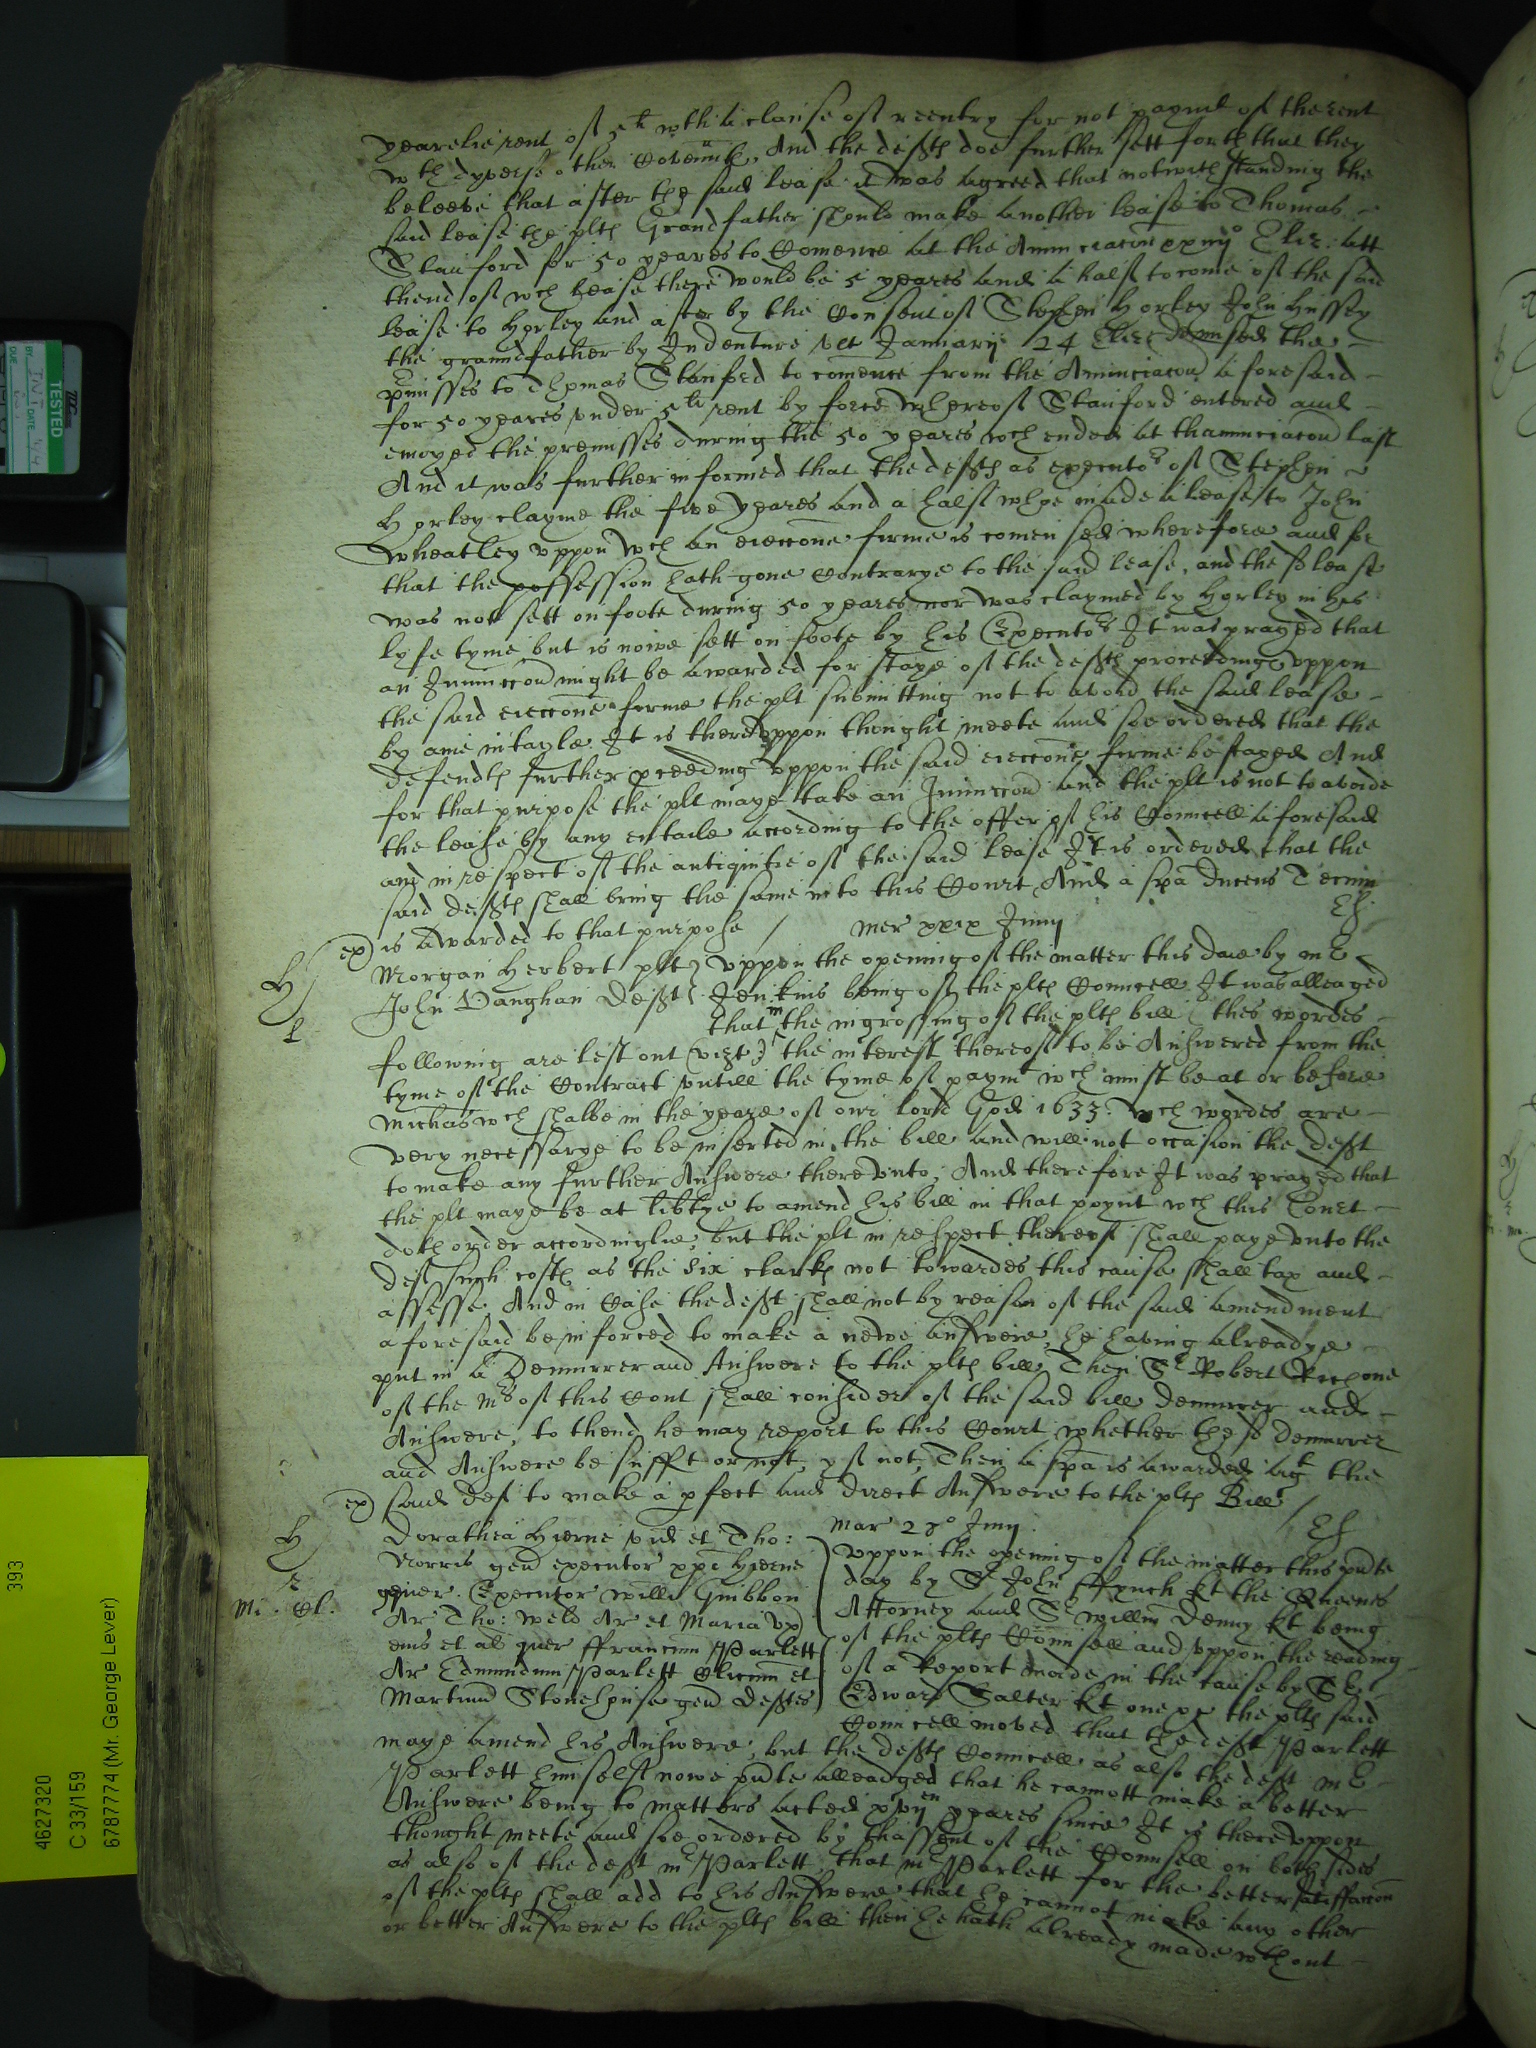 yearelie rent of 5li wth a clause of reentry for not paymt of the rent
wth dyverse other Covenntes, And the deftes doe further sett forth that they
beleeve that after the said lease it was agreed that notwithstanding the
said lease the pltes Grandfather should make another lease to Thomas
Stanford for 50 yeares to Comence at the Annunciacon Eliz: att
thend of wch lease there would be 5 yeares and a halfe to come of the said
lease to Horley and after by the Consent of Stephen Horley John Hussey
the grandfather by Indenture Januarij 24 Eliz demised the
pmisses to Thomas Stanford to comence from the Annunciacon aforesaid
for 50 yeares under 5li rent by force whereof Stanford entered and
enioyed the premisses during the 50 yeares wch ended at thannunciacon last
And it was further informed that the deftes as executors of Stephen
Horley clayme the five yeares and a halfe whoe made a lease to John
Wheatley uppon wch an eieccone firme is comensed wherefore and for
that the possession hath gone Contrarye to the said lease, and the so lease
was not sett on foote during 50 yeares nor was claymed by Horley in his
lyfe tyme but is nowe sett on foote by his Executors It was prayed that
an Iniunccon might be awarded for staye of the deftes proceedinges uppon
the said eieccone firme the plt submitting not to avoid the said lease
by anie intayle. It is thereuppon thought meete and soe ordered that the
defendtes further pceeding uppon the said eieccone firme be stayed And
for that purpose the plt maye take an Iniunccon and the plt is not to avoide
the lease by any entaile according to the offer of his Councell aforesaid
and in respect of the antiquitie of the said lease It is ordered that the
said deftes shall bring the same into this Court And a spa ducens Tecum
is awarded to that purpose /
Mer xxix Junij
ex
H
Morgan Herbert plt
John Vaughan deft
Uppon the opening of the matter this daie by Mr
Jenkins being of the pltes Councell It was alleaged
that in the ingrossing of the pltes bill thes wordes
following are left out (vizt) the interest thereof to be Answered from the
tyme of the Contract untill the tyme of paymt wch must be at or before
Michas wch shalbe in the yeare of our lord God 1633: wch wordes are
very necessarye to be inserted in the bill and will not occasion the deft
to make any further Answere thereunto, And therefore It was prayed that
the plt maye be at libtye to amend his bill in that poynt wch this Court
doth order accordinglie, but the plt in respect thereof shall paye unto the
deft such costes as the six clarkes not towardes this cause shall tax and
assesse. And in Case the deft shall not by reason of the said amendment
aforesaid be inforced to make a newe answere, he having alreadye
put in a Demurrer and Answere to the pltes bill, Then Sr Robert Rich one
of the Mrs of this Court shall consider of the said bill demurrer and
Answere, to thend he may report to this Court whether the so demurrer
and Answere be sufft or not, yf not, Then a spa is awarded agt the
said deft to make a pfect and direct Answere to the pltes Bill /
Mar 28o Junij
ex
H
Mi: Cl:
Dorathea Hierne vid et Tho:
Norris gen executor xpi Hierne
gener. Executor willi Guibbon
Ar Tho: Webb Ar et Maria ux
eius et al quer ffrancum Parlett
Ar Edmundum Parlett Clicum et
Martinu Stonehouse gen deftes
Uppon the opening of the matter this pnte
day by Sr John ffynch kt the Queenes
Attorney and Sr Willm Denny kt being
of the pltes Counsell and uppon the reading
of a Report made in the cause by Sr
Edward Salter kt one of the pltes said
Councell moved that the deft Parlett
maye amend his Answere, but the deftes Councell as also the deft Mr
Parlett himself nowe pnte alleadged that he cannott make a better
Answere being to matters acted yeares since It is thereuppon
thought meete and soe ordered by thassent of the Counsell on both sides
as also of the deft Mr Parlett, that Mr Parlett for the better satisfaccon
of the pltes shall add to his Answere that he cannot make any other
or better Answere to the pltes bill then he hath already made wthout
TESTED
BY:
DATE
DUE
393
4627320
C 33/159
6787774 (Mr. George Lever)